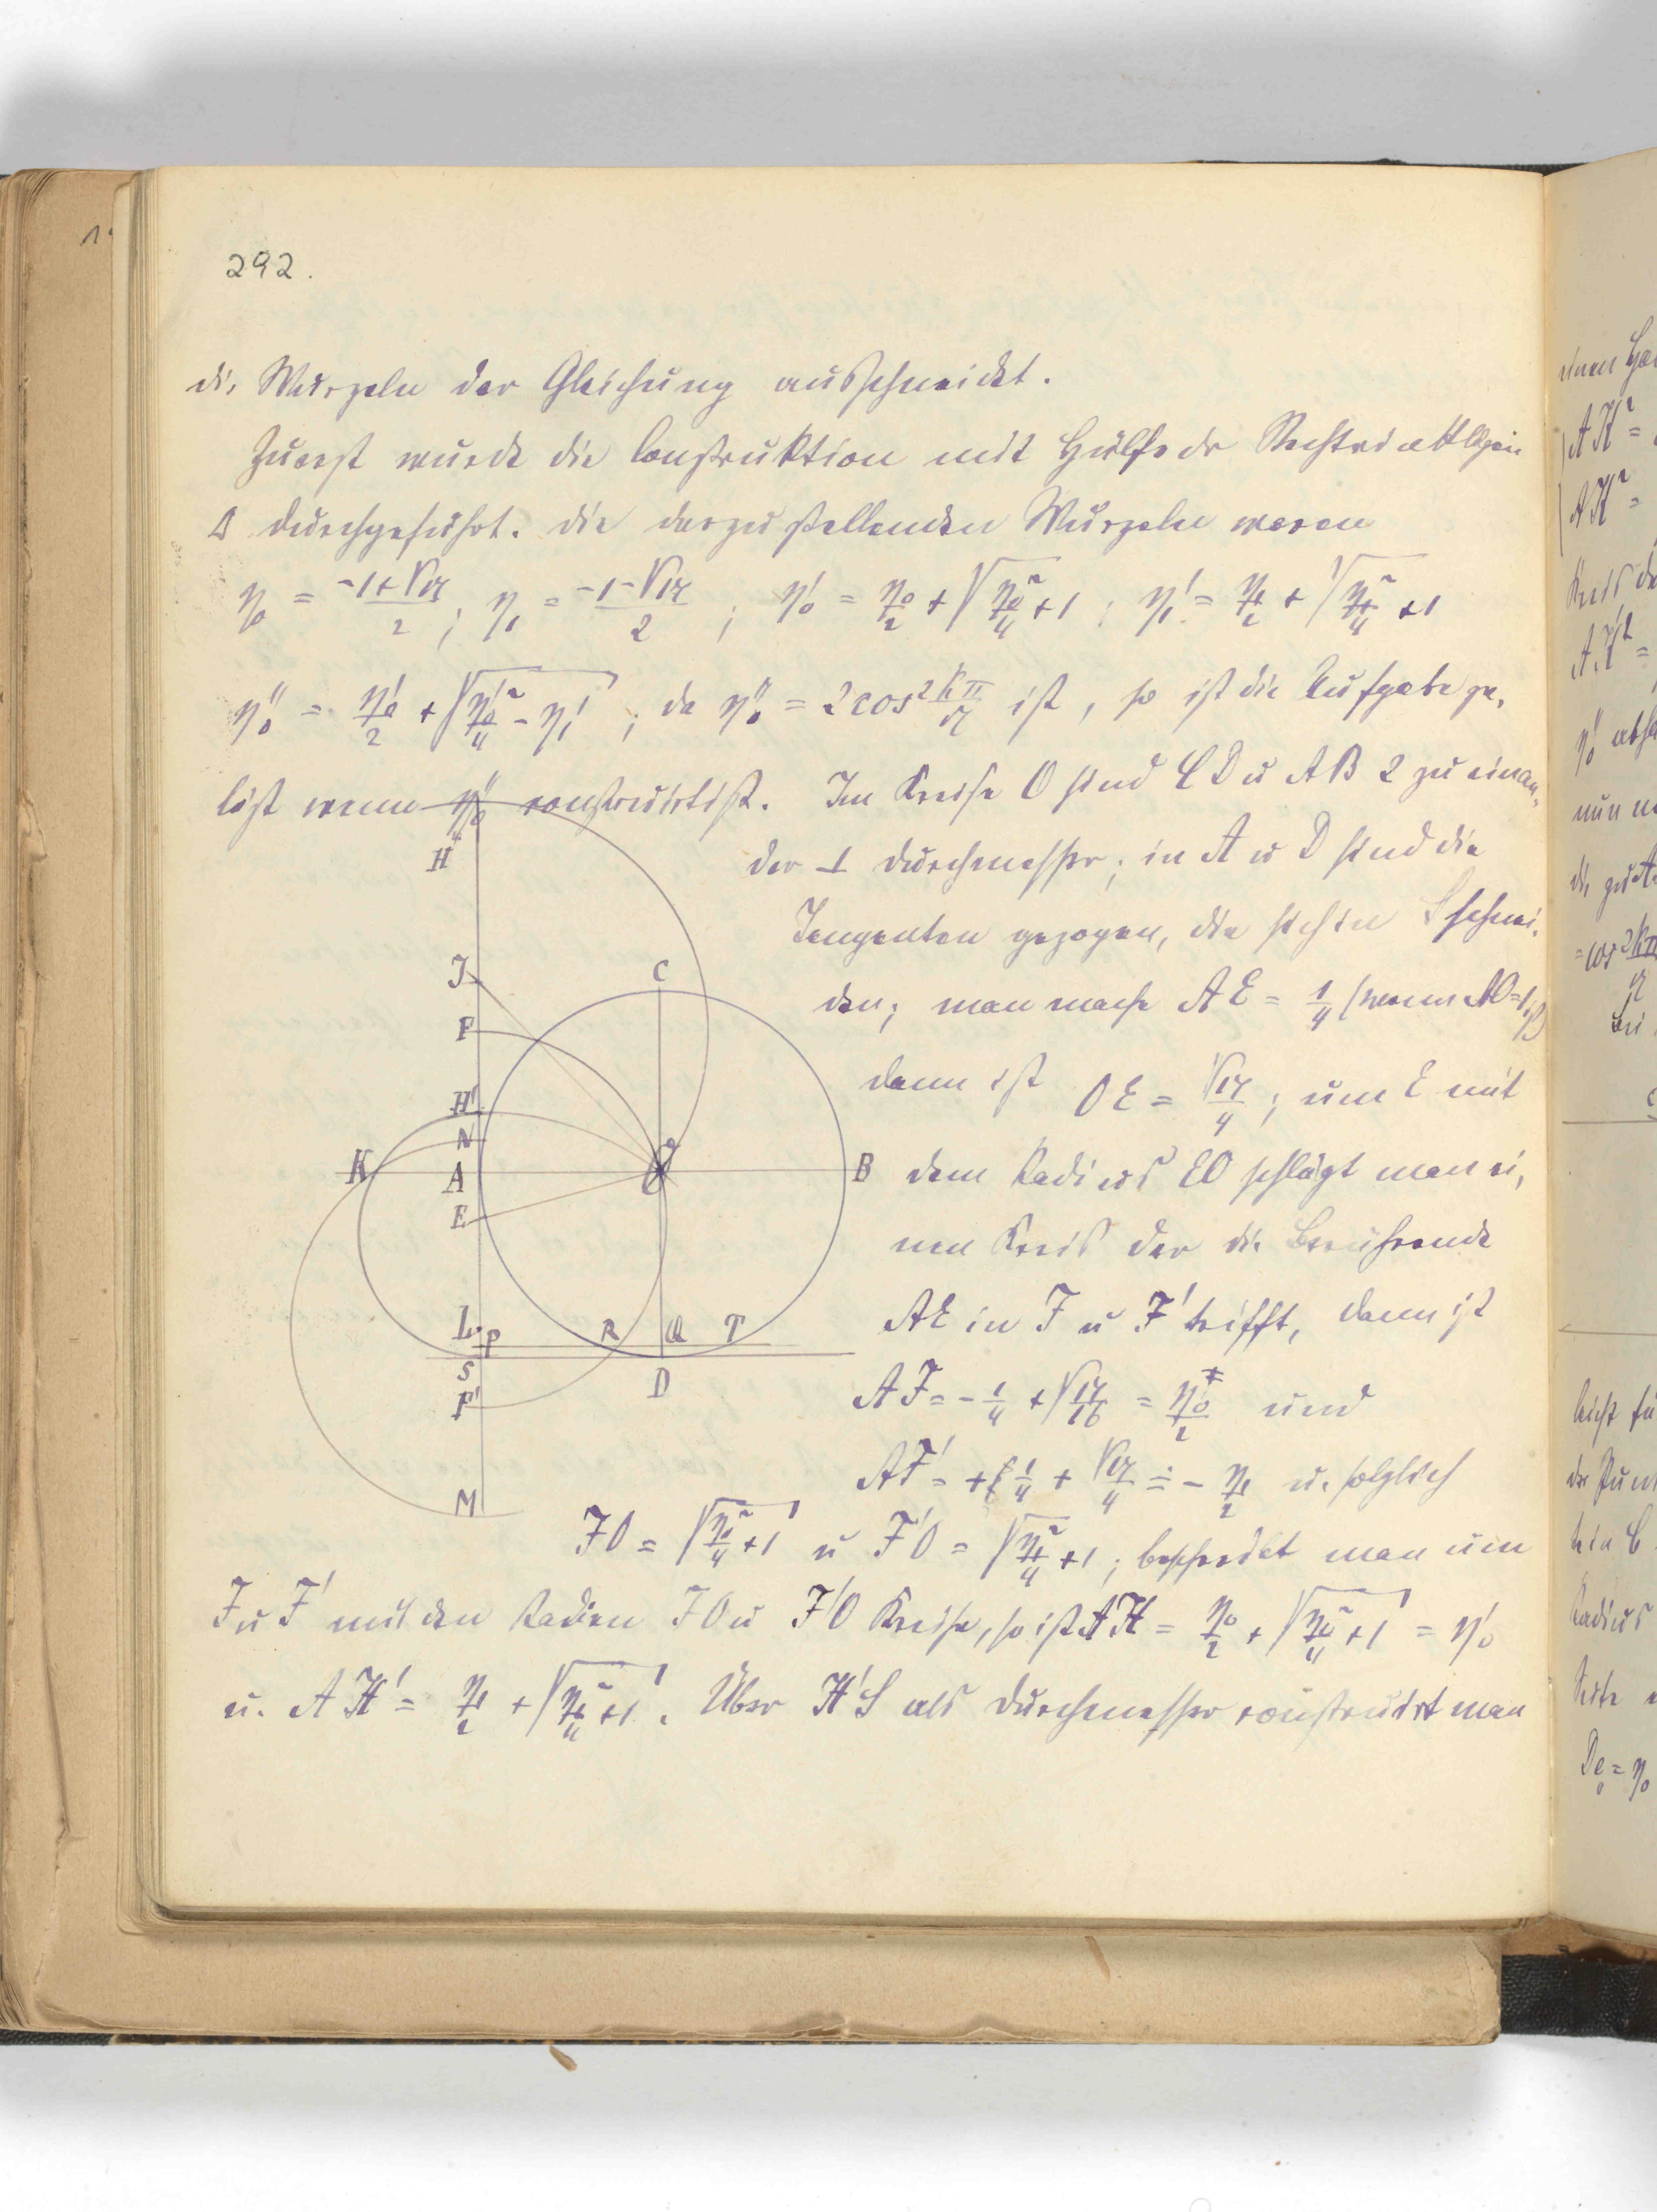 292.
die Wurzeln der Gleichung ausschneidet.
Zuerst wurde die Construktion mit Hülfe der
durchgeführt. Die darzustellenden Wurzeln waren
η₀ = (-1+√17)/2 ; η₁ = (-1-√17)/2 ; η₀' = η₀/2 + √(η₀²/4 + 1) ; η₁' = η₁/2 + √(η₁²/4 + 1)
η₀'' = η₀'/2 + √(η₀'²/4 - η₁') ; da η₀'' = 2cos 2kπ/17 ist, so ist die Aufgabe ge-
löst wenn η₀'' construirt ist. Im Kreise O sind CD u AB 2 zu einan-
der ⊥ Durchmesser; in A u D sind die
Tangenten gezogen, die sich in S schnei-
den; man mache AE = 1/4 (wenn AO=1),
dann ist OE = √17/4 ; um E mit
dem Radius EO schlägt man ei-
nen Kreis der die Berührende
AE in F u F' trifft, dann ist
AF = -1/4 + √(17/16) = η₀/2 und
AF' = + 1/4 + √17/4 = - η₁/2 u. folglich
FO = √(η₀²/4 + 1) u F'O = √(η₁²/4 + 1) ; beschreibt man um
F u F' mit den Radien FO u F'O Kreise, so ist AH = η₀/2 + √(η₀²/4 + 1) = η₀'
u. AH' = η₁/2 + √(η₁²/4 + 1). Über H'S als Durchmesser construirt man
H
J
C
F
H'
N
K
A
O
B
E
L
P
R
Q
T
S
D
F'
M